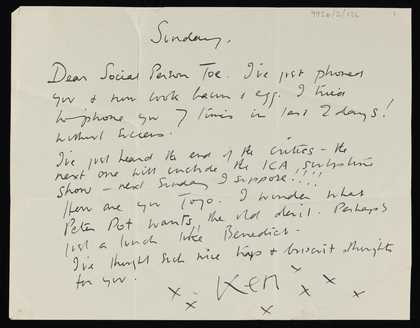 9920/2/126
Sunday.
Dear Social Person Toe. I've just phoned
you & now cook bacon & egg. I tried
to phone you 7 times in last 2 days!
without success.
I've just heard the end of the critics – the
next one will include the ICA sculpture
show – next Sunday I suppose!!!!
How are you Toyo. I wonder what
Peter Pot wants the old devil. Perhaps
just a lunch like Benedict.
I've thought such nice trap & biscuit thoughts
for you.
x x . KEN x x x x x